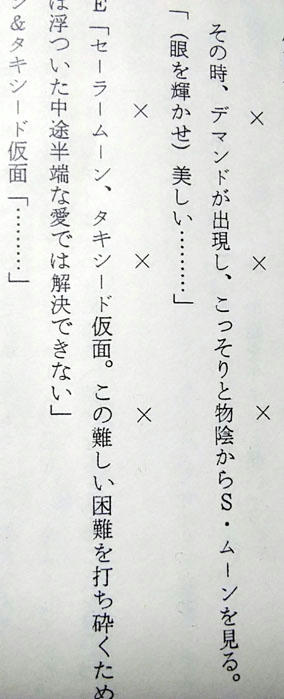 ×　×　×
その時、デマンドが出現し、こっそりと物陰からS・ムーンを見る。
「（眼を輝かせ）美しい…………」
×　×　×
E「セーラームーン、タキシード仮面。この難しい困難を打ち砕くため
は浮ついた中途半端な愛では解決できない」
ン＆タキシード仮面「…………」